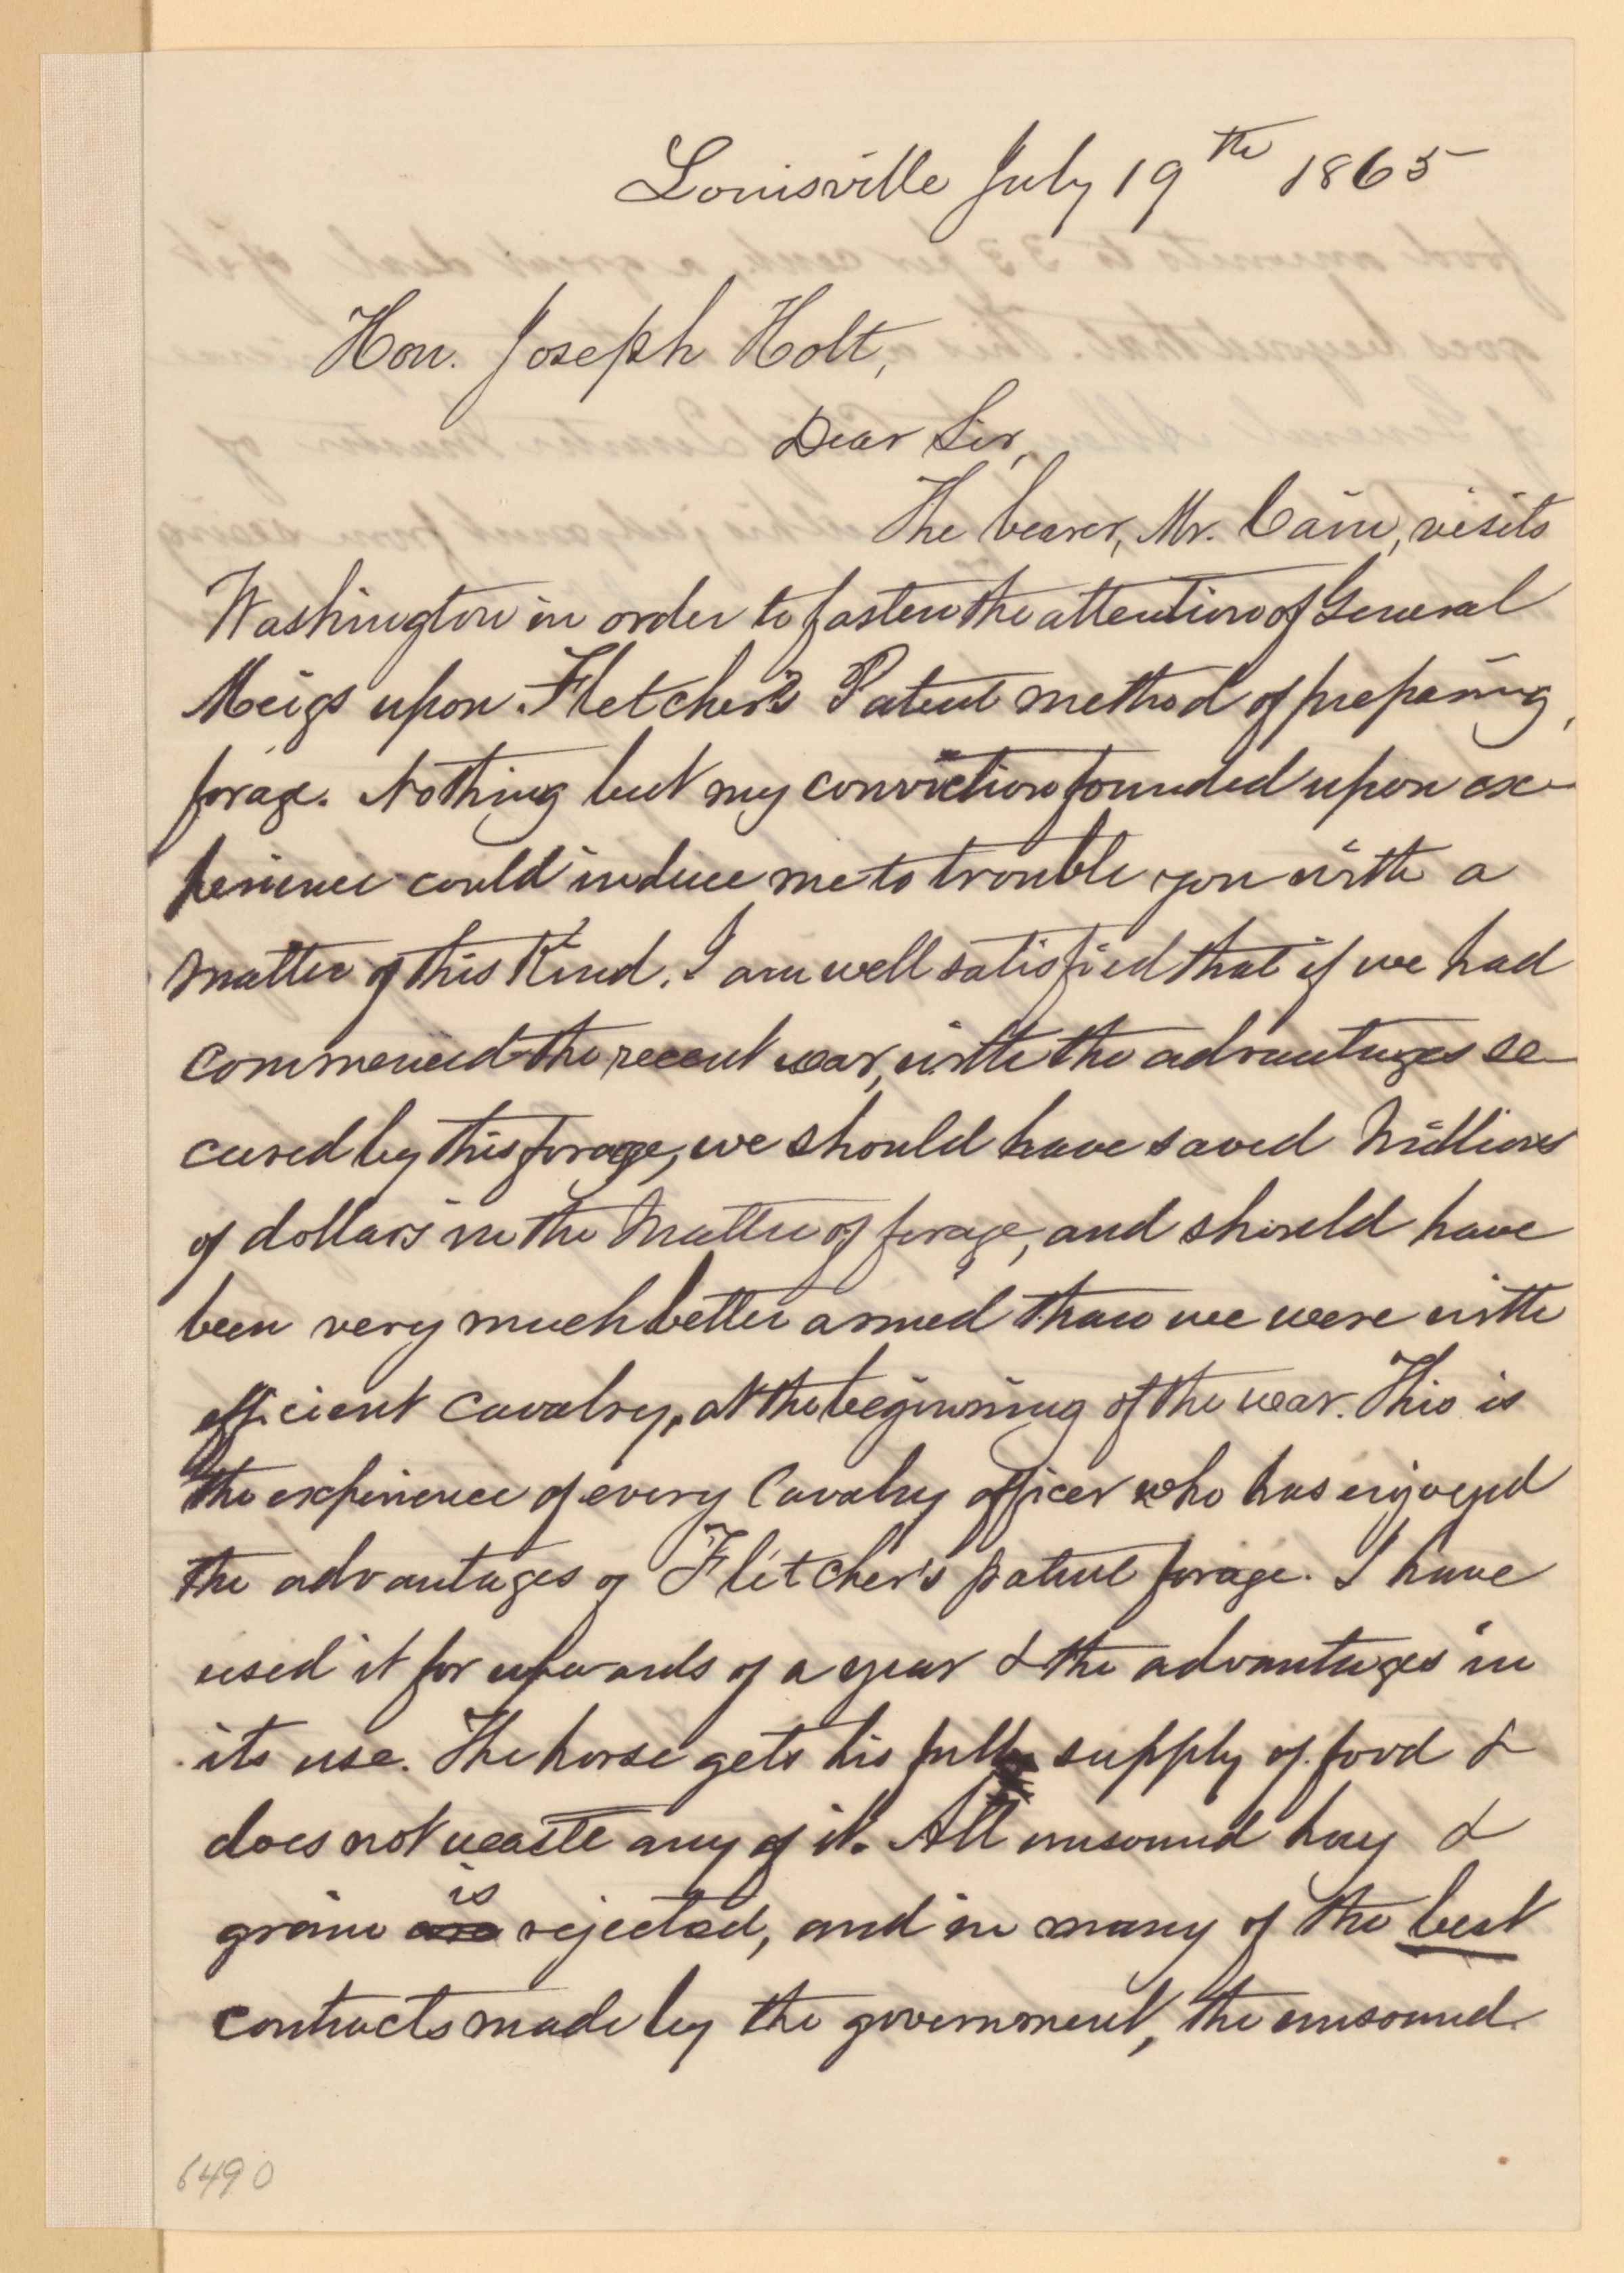 Louisville July 19th 1865
Hon. Joseph Holt,
Dear Sir,
The bearer, Mr. Cain, visits
Washington in order to fasten the attention of General
Meigs upon Fletcher's Patent method of preparing
forage. Nothing but my conviction founded upon ex-
perience could induce me to trouble you with a
matter of this kind. I am well satisfied that if we had
commenced the recent war, with the advantages se-
cured by this forage, we should have saved Millions
of dollars in the matter of forage, and should have
been very much better armed than we were with
efficient cavalry, at the beginning of the war. This is
the experience of every Cavalry officer who has enjoyed
the advantages of Fletcher's patent forage. I have
used it for upwards of a year & the advantages in
its use. The horse gets his full supply of food &
does not waste any of it. All unsound hay &
is
grain are rejected, and in many of the best
contracts made by the government, the unsound
6490